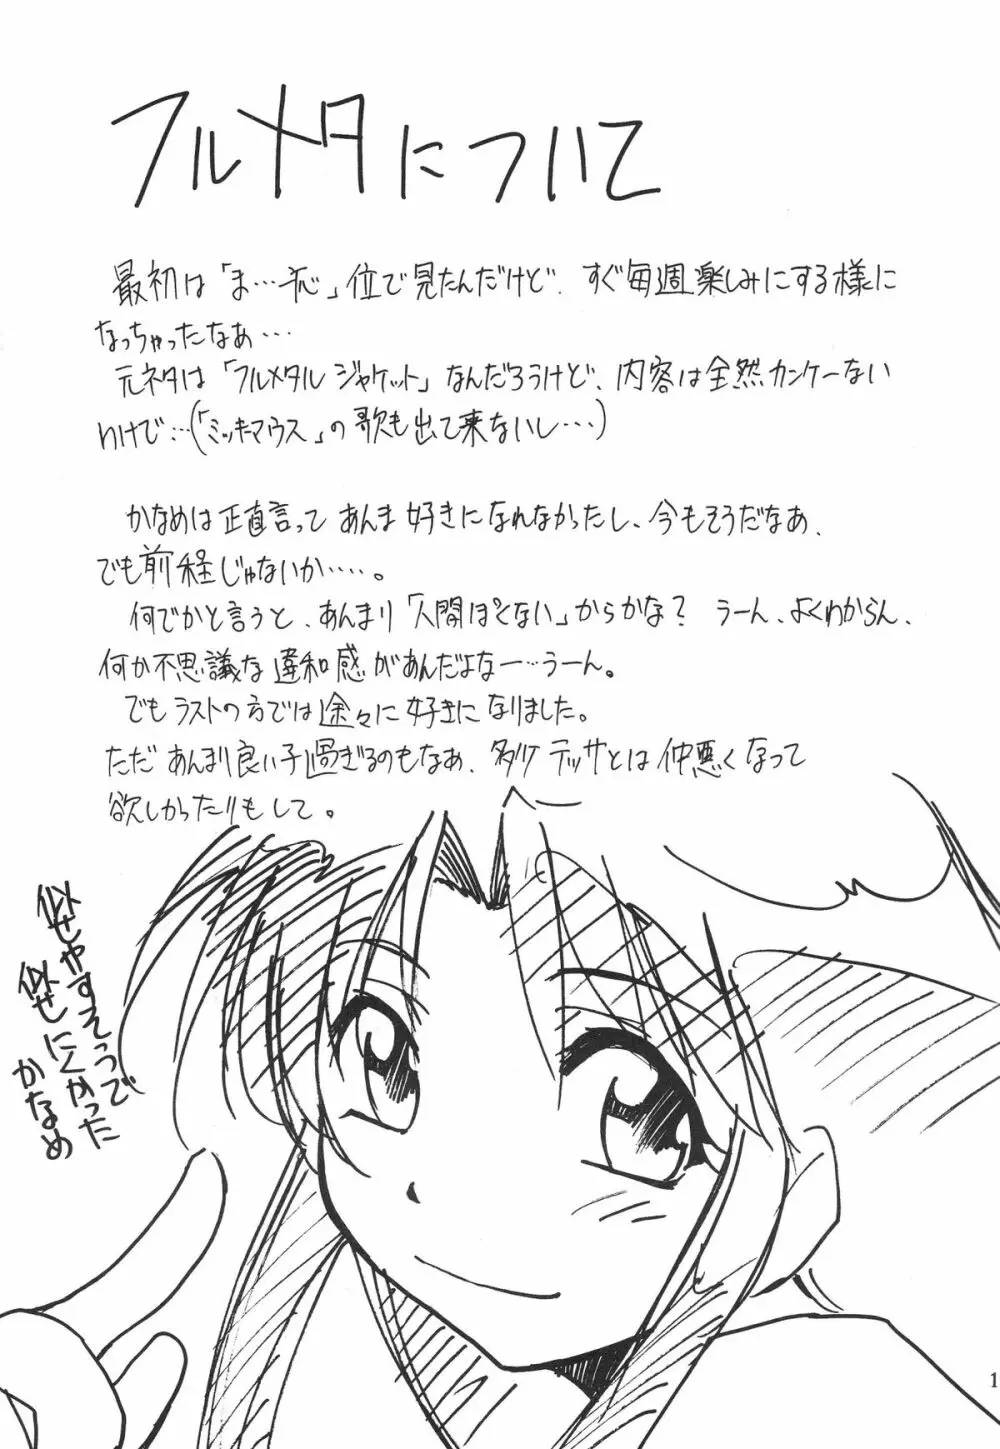 フルメタについて
最初は「ま…一応」位で見たんだけど、すぐ毎週楽しみにする様に
なっちゃったなぁ…
元ネタは「フルメタルジャケット」なんだろうけど、内容は全然カンケーない
わけで…(「ミッキーマウス」の歌も出て来ないし…)
かなめは正直言ってあんま好きになれなかったし、今もそうだなあ、
でも前程じゃないか……。
何でかと言うと、あんまり「人間ぽくない」からかな？ うーん、よくわからん、
何か不思議な違和感があんだよなー…うーん。
でもラストの方では途々に好きになりました。
ただあんまり良い子過ぎるのもなぁ、多少テッサとは仲悪くなって
欲しかったりもして。
似せやすそうで
似せにくかった
かなめ
1